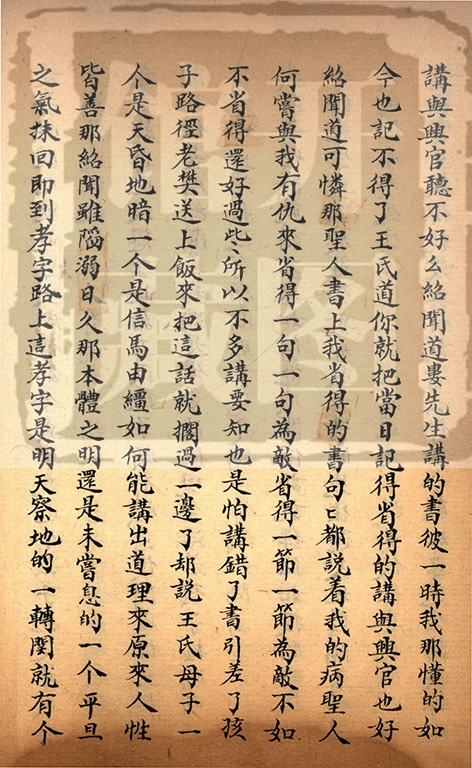 講與興官聽不好么紹聞道婁先生講的書彼一時我那懂的如
今也記不得了王氏道你就把當日記得省得的講與興官也好
紹聞道可憐那聖人書上我省得的書句〻都說着我的病聖人
何嘗與我有仇來省得一句一句為敵省得一節一節為敵不如
不省得還好過些〻所以不多講要知也是怕講錯了書引差了孩
子路徑老樊送上飯來把這話就擱過一邊了却說王氏母子一
个是天昏地暗一个是信馬由繮如何能講出道理來原來人性
皆善那紹聞雖陷溺日久那本體之明還是未嘗息的一个平旦
之氣抹回即到孝字路上這孝字是明天察地的一轉関就有个